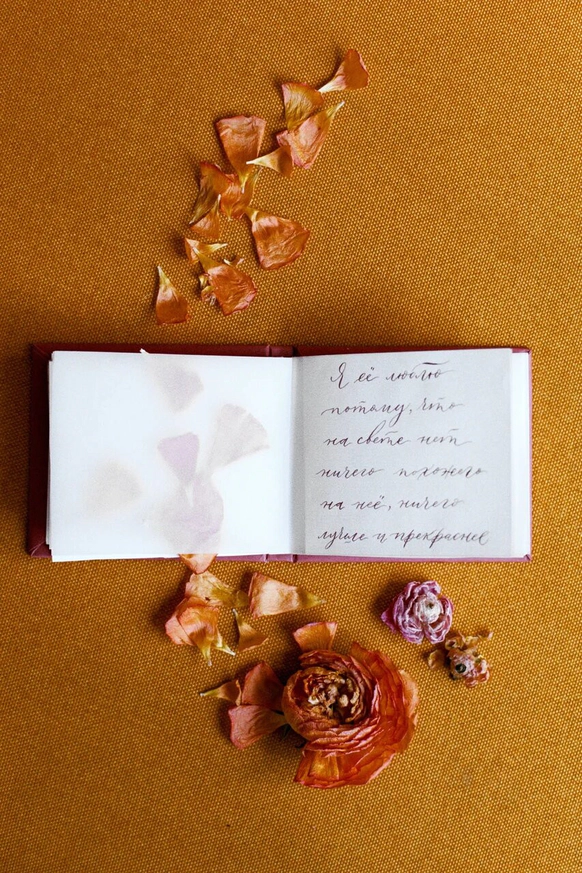 Я её люблю
потому, что
на свете нет
ничего похожего
на неё, ничего
лучше и прекраснее